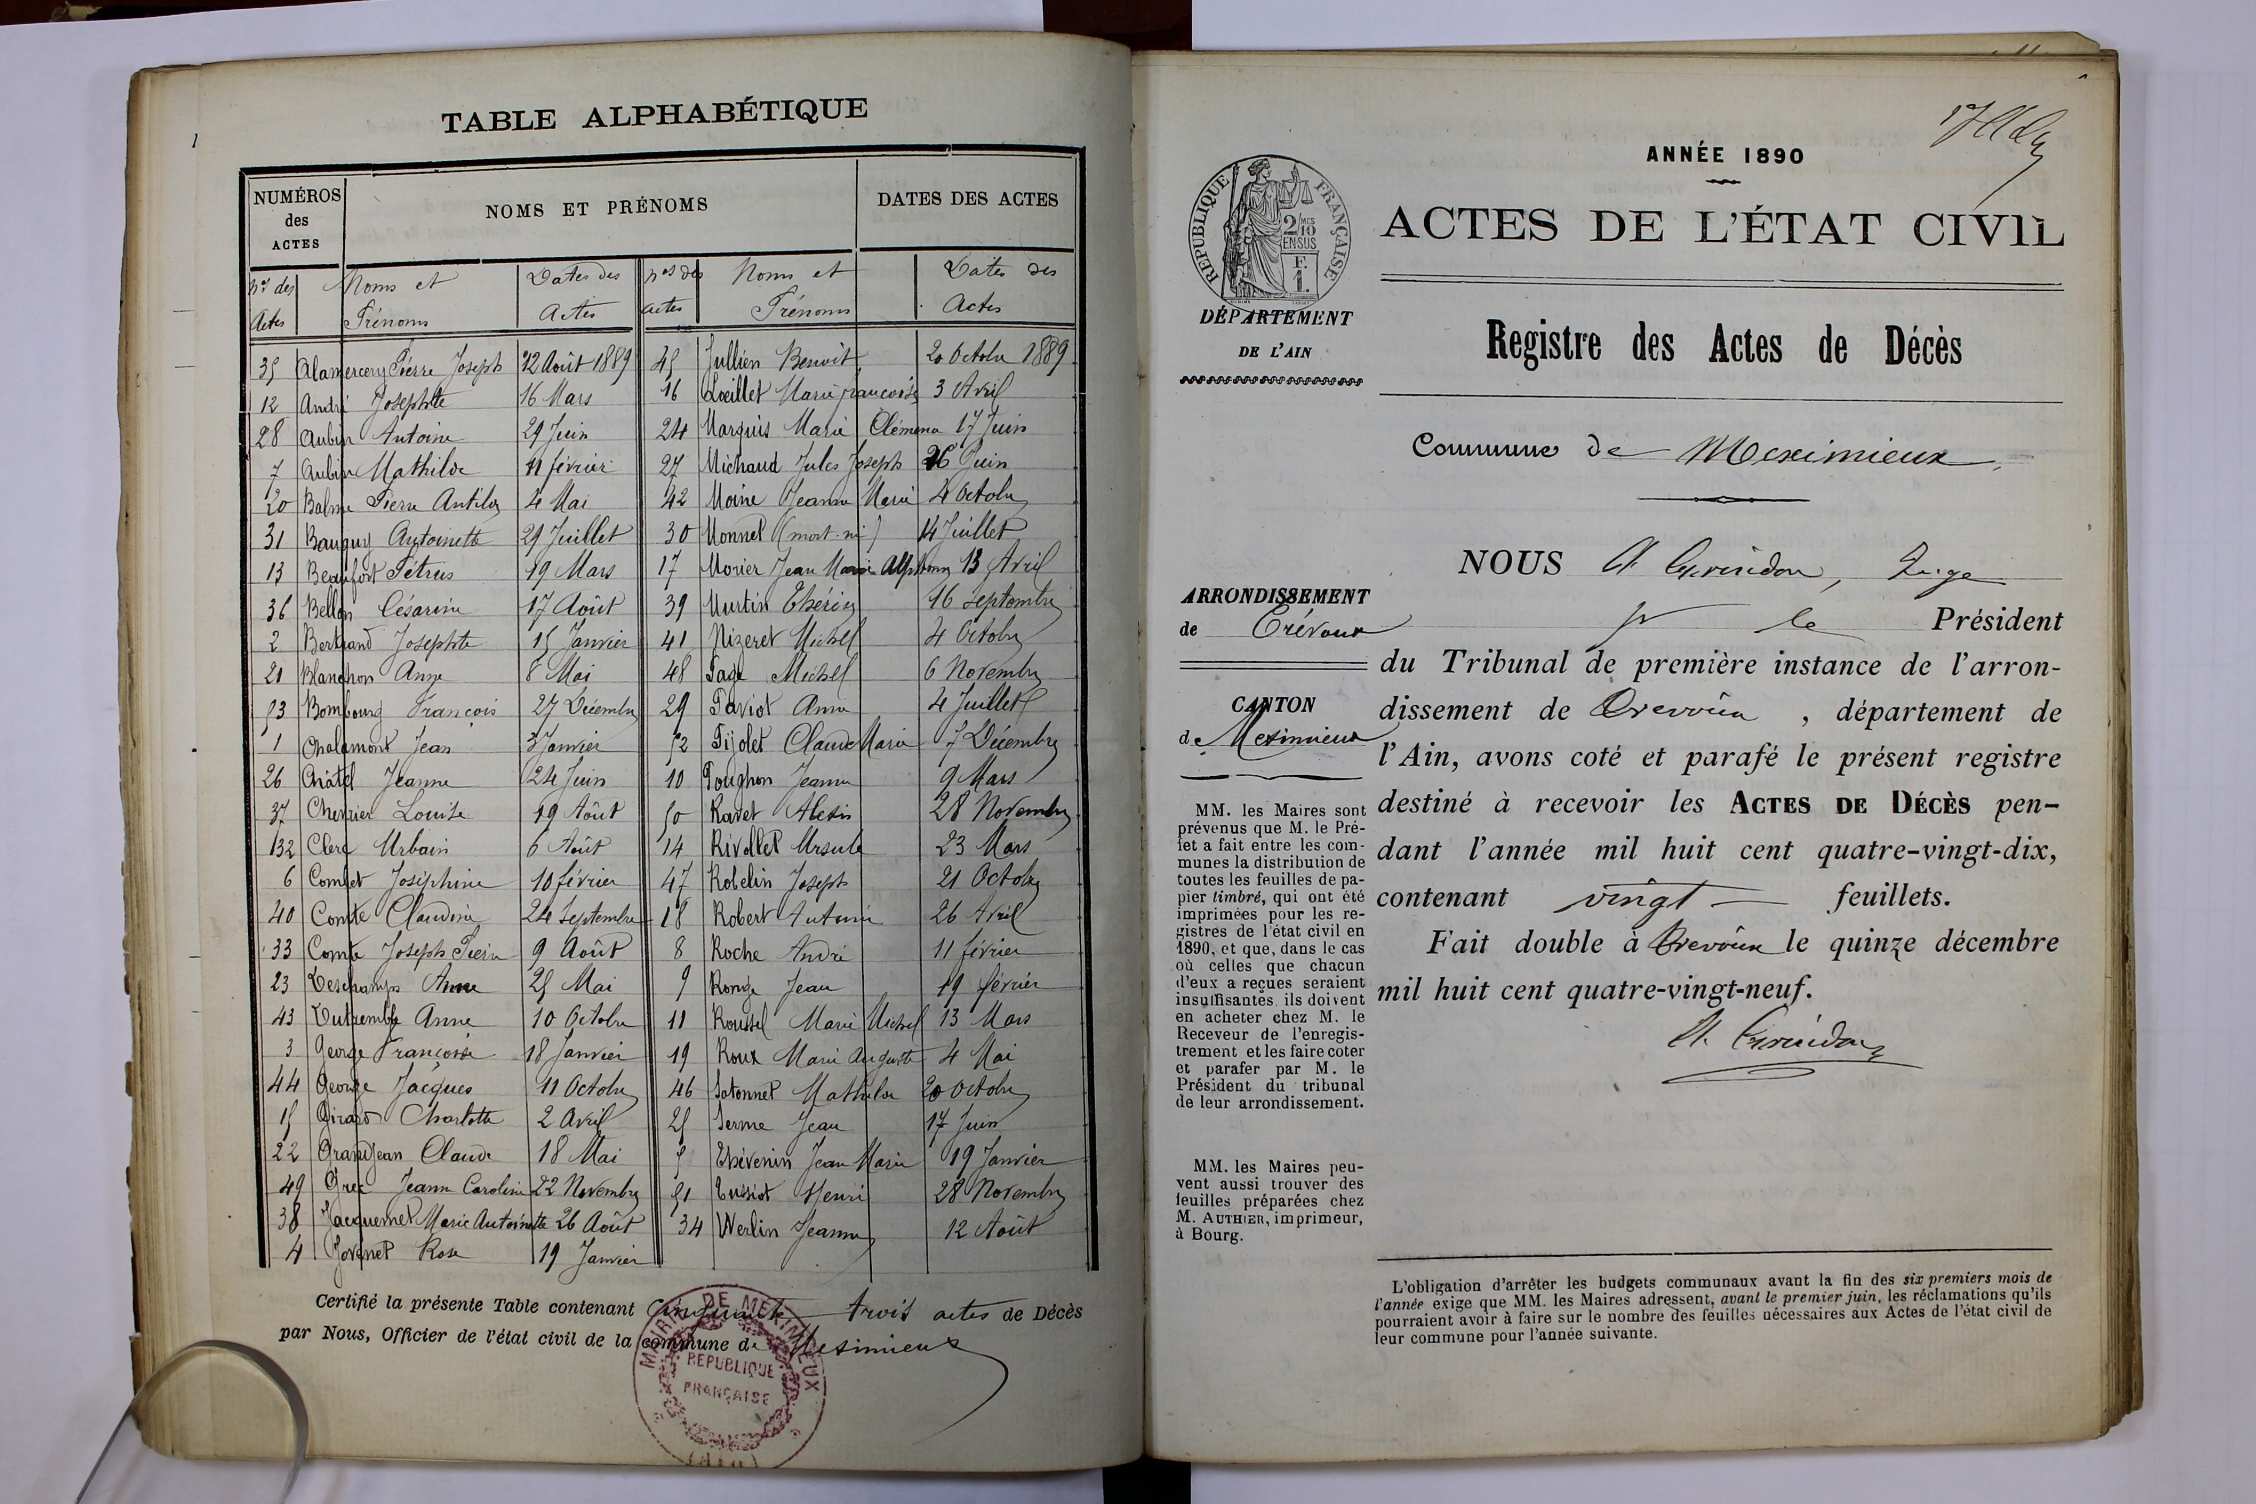 TABLE ALPHABÉTIQUE
NUMÉROS des ACTES
NOMS ET PRÉNOMS
DATES DES ACTES
Nos des Actes
Noms et Prénoms
Dates des Actes
nos des actes
Noms et Prénoms
Dates des Actes
35 Alamercery Pierre Joseph 12 Août 1889
12 André Josephte 16 Mars
28 Aubin Antoine 29 Juin
7 Aubin Mathilde 11 février
20 Balme Pierre 4 Mai
31 Bauguy Antoinette 29 Juillet
13 Beaufort Pétrus 19 Mars
36 Bellon Césarine 17 Août
2 Bertrand Josephte 15 Janvier
21 Blanchon Anne 8 Mai
53 Bombourg François 27 Décembre
1 Chalamont Jean 3 Janvier
26 Châtel Jeanne 24 Juin
37 Chevrier Louise 19 Août
132 Clerc Urbain 6 Août
6 Combet Joséphine 10 février
40 Comte Claudine 24 Septembre
33 Comte Joseph Pierre 9 Août
23 Deschamps Anne 25 Mai
43 Dutremble Anne 10 Octobre
3 George Françoise 18 Janvier
44 George Jacques 11 Octobre
15 Girard Charlotte 2 Avril
22 Grandjean Claude 18 Mai
49 Grec Jeanne Caroline 22 Novembre
38 Jacquemet Marie Antoinette 26 Août
4 Rose 19 Janvier
45 Jullien Benoit 20 Octobre 1889
16 Loeillet Marie françoise 3 Avril
24 Marquis Marie Clémence 17 Juin
27 Michaud Jules Joseph 26 Juin
42 Moine Jeanne Marie 4 Octobre
30 Monnet (mort-né) 14 Juillet
17 Morier Jean Marie Alphonse 13 Avril
39 Murtin Thérèse 16 Septembre
41 Nizeret Michel 4 Octobre
48 Page Michel 6 Novembre
29 Paviot Anne 4 Juillet
52 Pijolet Claude Marie 7 Décembre
10 Poughon Jeanne 9 Mars
50 Ravet Alexis 28 Novembre
14 Rivollet Ursule 23 Mars
47 Robelin Joseph 21 Octobre
18 Robert Antoine 26 Avril
8 Roche André 11 février
9 Ronge Jean 19 février
11 Roussel Marie Michel 13 Mars
19 Roux Marie Auguste 4 Mai
46 Satonnet Mathilde 20 Octobre
25 Serme Jean 17 Juin
5 Thévenin Jean Marie 19 Janvier
51 Tussiot Henri 28 Novembre
34 Werlin Jeanne 12 Août
Certifié la présente Table contenant Cinquante trois actes de Décès
par Nous, Officier de l'état civil de la commune de Meximieux
MAIRIE DE MEXIMIEUX
RÉPUBLIQUE
FRANÇAISE
(AIN)
ANNÉE 1890
ACTES DE L'ÉTAT CIVIL
RÉPUBLIQUE FRANÇAISE
2/10
EN SUS
F.
1.
DÉPARTEMENT
DE L'AIN
Registre des Actes de Décès
Commune de Meximieux
ARRONDISSEMENT
de Trévoux
CANTON
de Meximieux
NOUS A. Guveidon, Juge
pr le Président
du Tribunal de première instance de l'arron-
dissement de Trevoux, département de
l'Ain, avons coté et parafé le présent registre
destiné à recevoir les ACTES DE DÉCÈS pen-
dant l'année mil huit cent quatre-vingt-dix,
contenant vingt feuillets.
Fait double à Trevoux le quinze décembre
mil huit cent quatre-vingt-neuf.
MM. les Maires sont
prévenus que M. le Pré-
fet a fait entre les com-
munes la distribution de
toutes les feuilles de pa-
pier timbré, qui ont été
imprimées pour les re-
gistres de l'état civil en
1890, et que, dans le cas
où celles que chacun
d'eux a reçues seraient
insuffisantes, ils doivent
en acheter chez M. le
Receveur de l'enregis-
trement et les faire coter
et parafer par M. le
Président du tribunal
de leur arrondissement.
MM. les Maires peu-
vent aussi trouver des
feuilles préparées chez
M. AUTHIER, imprimeur,
à Bourg.
L'obligation d'arrêter les budgets communaux avant la fin des six premiers mois de
l'année exige que MM. les Maires adressent, avant le premier juin, les réclamations qu'ils
pourraient avoir à faire sur le nombre des feuilles nécessaires aux Actes de l'état civil de
leur commune pour l'année suivante.